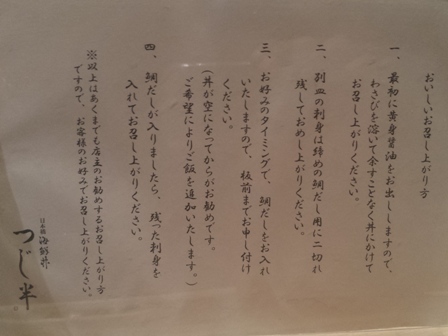 おいしいお召し上がり方
一、最初に黄身醤油をお出ししますので、
わさびを溶いて余すことなく丼にかけて
お召し上がりください。
二、別皿の刺身は締めの鯛だし用に二切れ
残しておめし上がりください。
三、お好みのタイミングで、鯛だしをお入れ
いたしますので、板前までお申し付け
ください。
(丼が空になってからがお勧めです。
ご希望によりご飯を追加いたします。)
四、鯛だしが入りましたら、残った刺身を
入れてお召し上がりください。
※以上はあくまでも店主のお勧めするお召し上がり方
ですので、お客様のお好みでお召し上がりください。
日本橋 海鮮丼
つじ半